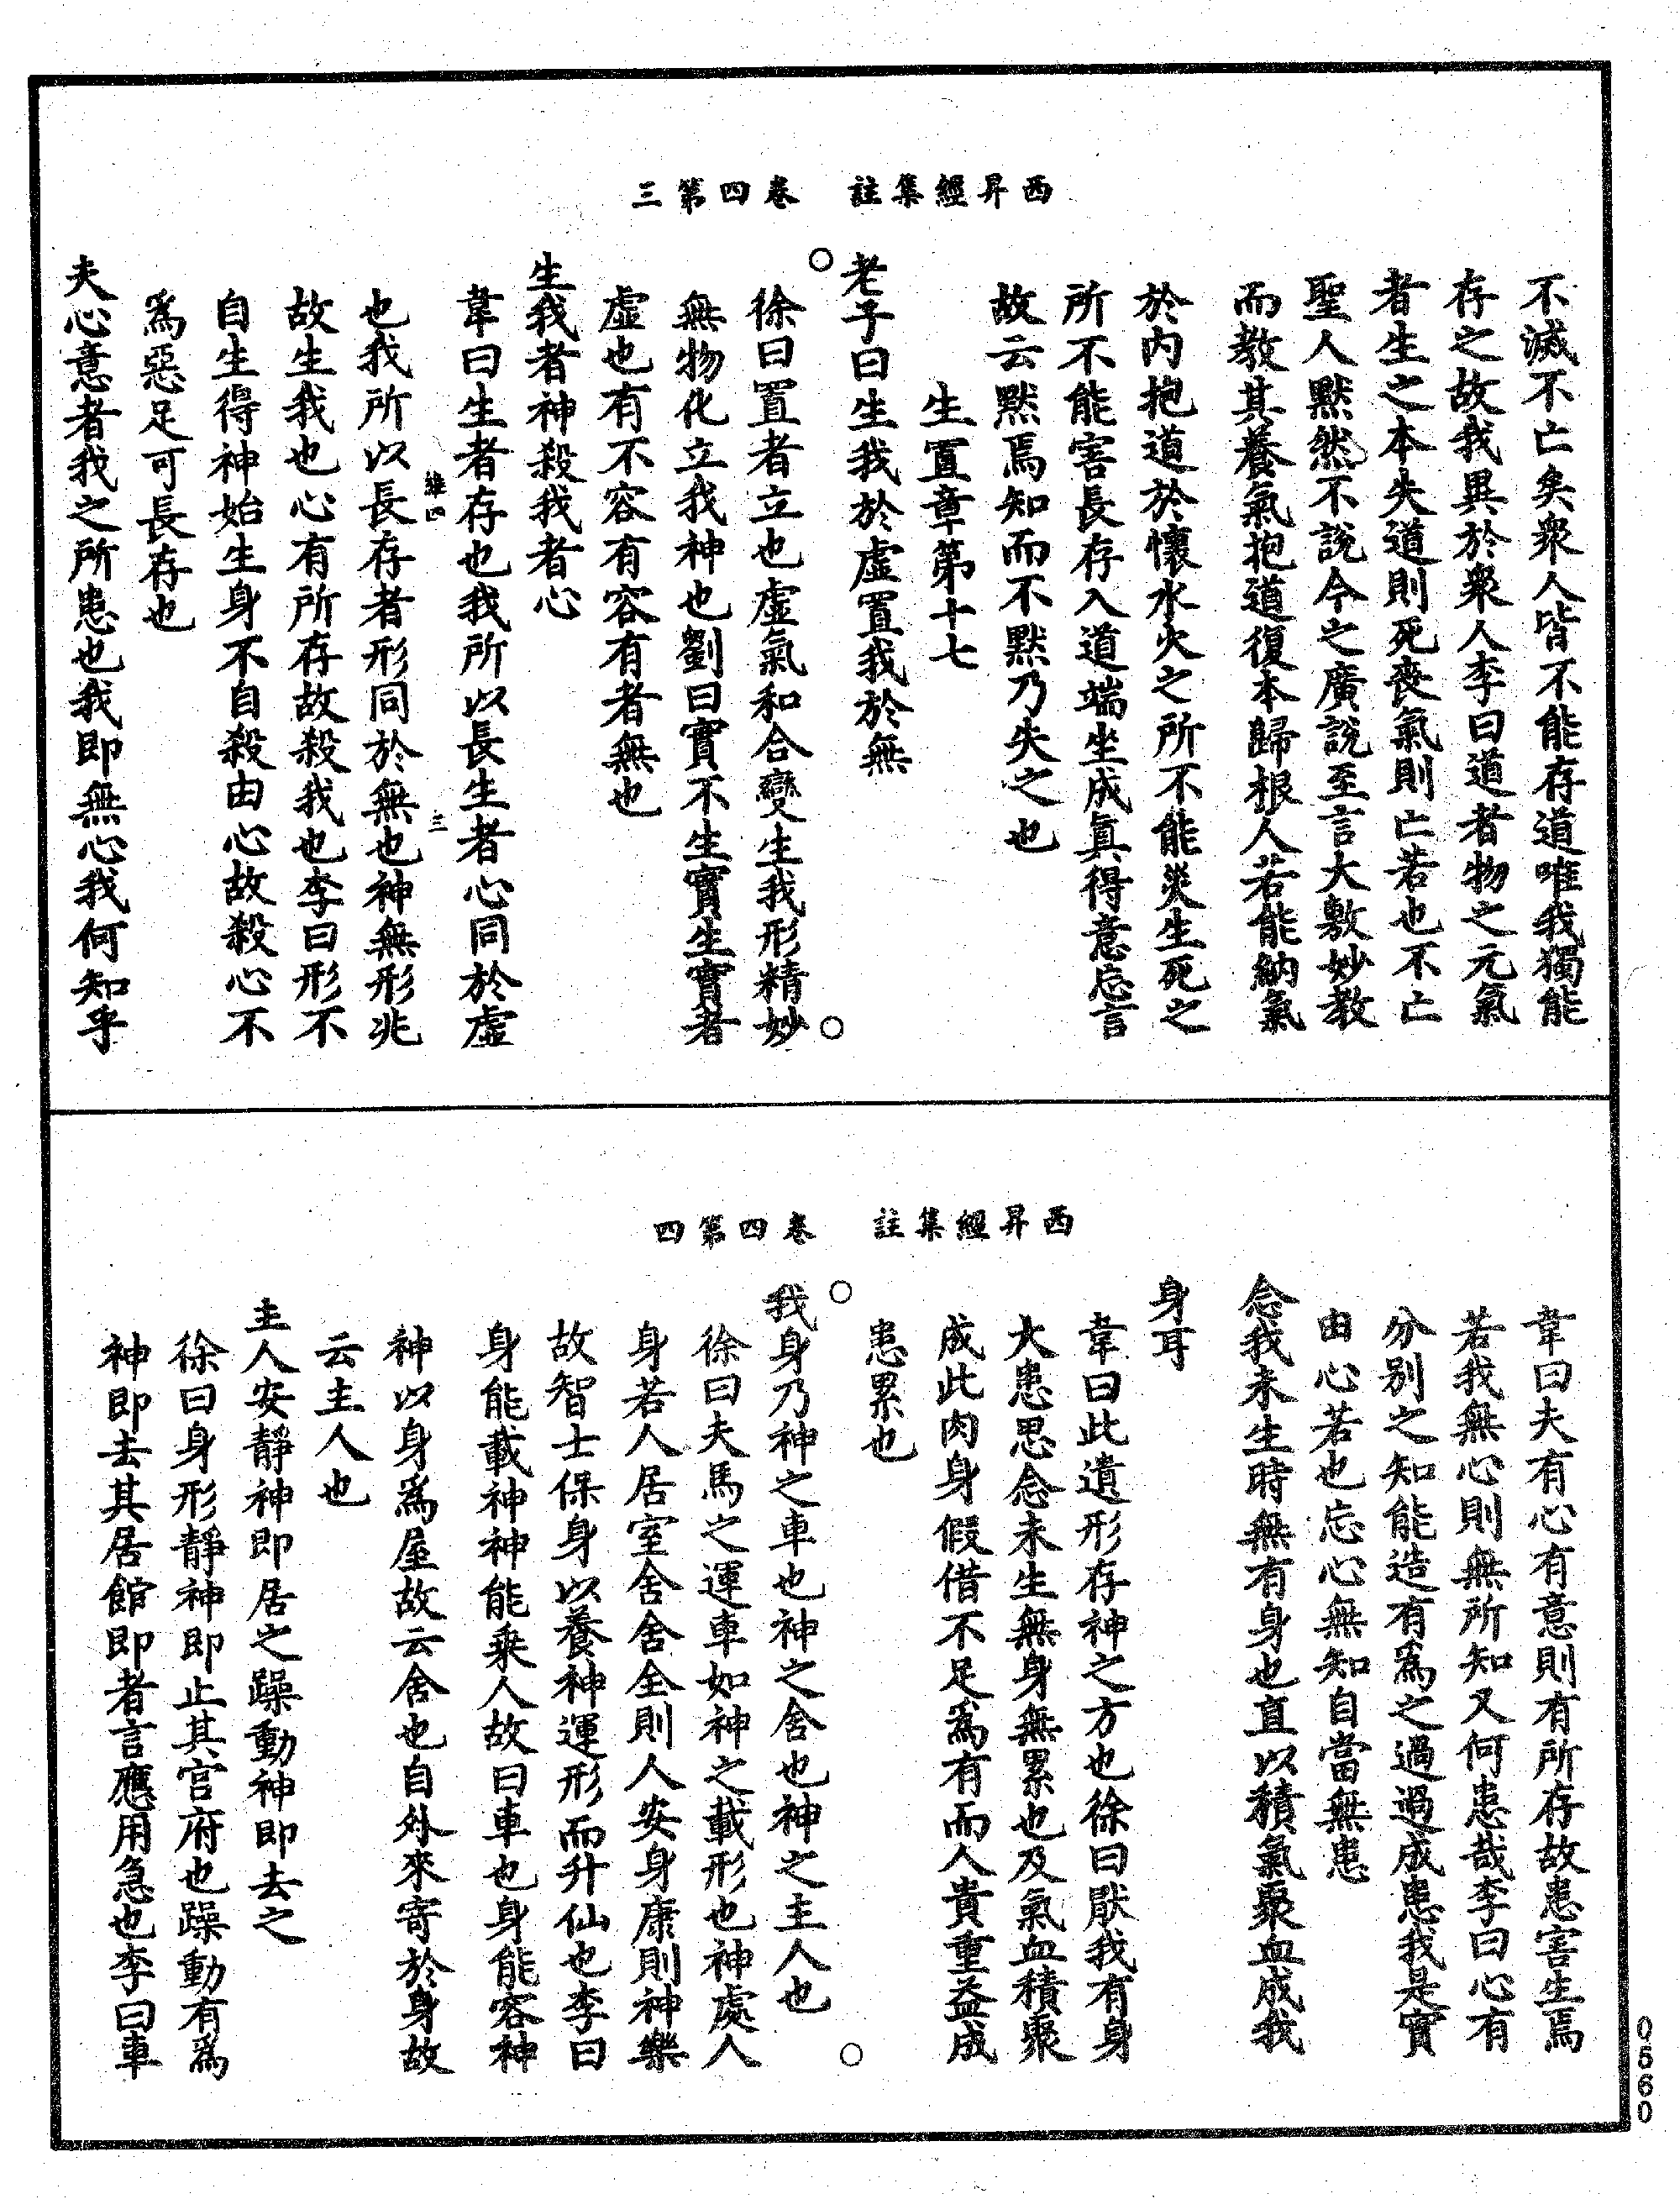 西昇經集註　卷四第三
不滅不亡矣衆人皆不能存道唯我獨能
存之故我異於衆人李曰道者物之元氣
者生之本失道則死喪氣則亡若也不亡
聖人默然不說今之廣說至言大敷妙教
而教其養氣抱道復本歸根人若能納氣
於內抱道於懷水火之所不能災生死之
所不能害長存入道端坐成眞得意忘言
故云默焉知而不默乃失之也
生置章第十七
老子曰生我於虛置我於無
徐曰置者立也虛氣和合變生我形精妙
無物化立我神也劉曰實不生實生實者
虛也有不容有容有者無也
生我者神殺我者心
韋曰生者存也我所以長生者心同於虛
維四　三
也我所以長存者形同於無也神無形兆
故生我也心有所存故殺我也李曰形不
自生得神始生身不自殺由心故殺心不
爲惡足可長存也
夫心意者我之所患也我即無心我何知乎
西昇經集註　卷四第四
韋曰夫有心有意則有所存故患害生焉
若我無心則無所知又何患哉李曰心有
分別之知能造有爲之過過成患我是實
由心若也忘心無知自當無患
念我未生時無有身也直以積氣聚血成我
身耳
韋曰此遺形存神之方也徐曰厭我有身
大患思念未生無身無累也及氣血積聚
成此肉身假借不足爲有而人貴重益成
患累也
我身乃神之車也神之舍也神之主人也
徐曰夫馬之運車如神之載形也神處人
身若人居室舍舍全則人安身康則神樂
故智士保身以養神運形而升仙也李曰
身能載神神能乘人故曰車也身能容神
神以身爲屋故云舍也自外來寄於身故
云主人也
主人安靜神即居之躁動神即去之
徐曰身形靜神即止其宮府也躁動有爲
神即去其居館即者言應用急也李曰車
0560